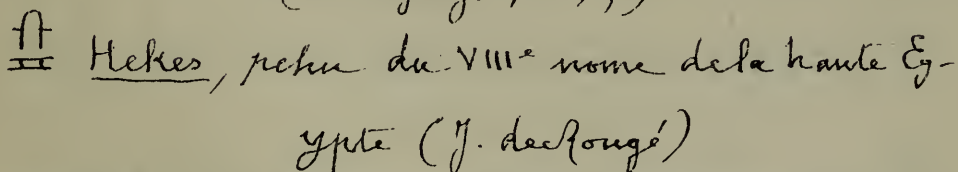 Hekes, pehu du VIIIe nome de la haute Eg-
ypte (J. de Rougé)